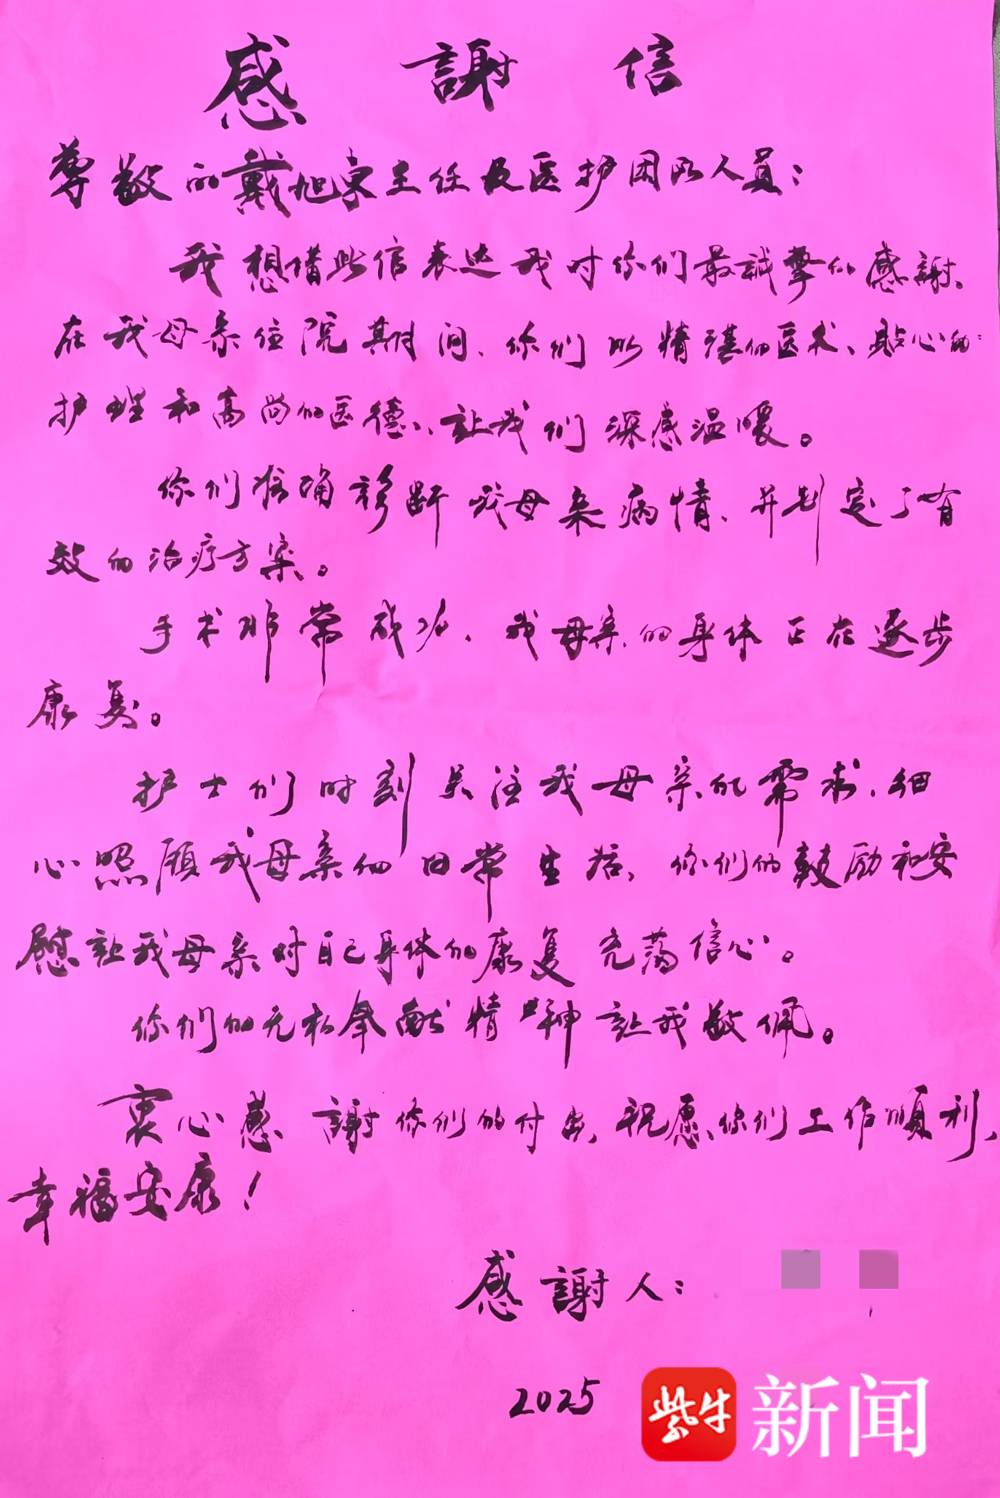 感謝信
尊敬的戴旭东主任及医护团队人员：
我想借此信表达我对你们最誠挚的感謝、
在我母亲住院期间、你们以精湛的医术、贴心的
护理和高尚的医德、让我们深感温暖。
你们准确诊断我母亲病情、并制定了有
效的治疗方案。
手术非常成功、我母亲的身体正在逐步
康复。
护士们时刻关注我母亲的需求、细
心照顾我母亲的日常生活、你们的鼓励和安
慰让我母亲对自己身体的康复充满信心。
你们的无私奉献精神让我敬佩。
衷心感謝你们的付出、祝愿你们工作顺利、
幸福安康！
感謝人：
2025
紫牛新闻